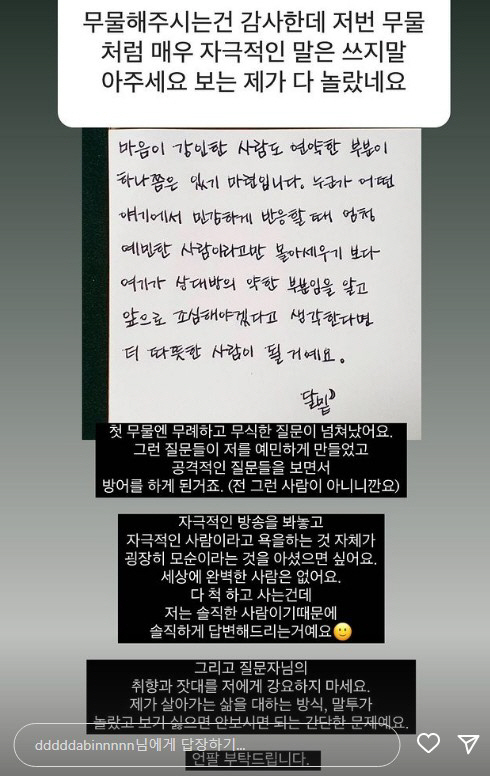 무물해주시는건 감사한데 저번 무물
처럼 매우 자극적인 말은 쓰지말
아주세요 보는 제가 다 놀랐네요
마음이 강인한 사람도 연약한 부분이
하나쯤은 있기 마련입니다. 누군가 어떤
얘기에서 민감하게 반응할 때 엄청
예민한 사람이라고만 몰아세우기 보다
여기가 상대방의 약한 부분임을 알고
앞으로 조심해야겠다고 생각한다면
더 따뜻한 사람이 될 거예요.
달밑
첫 무물엔 무례하고 무식한 질문이 넘쳐났어요.
그런 질문들이 저를 예민하게 만들었고
공격적인 질문들을 보면서
방어를 하게 된거죠. (전 그런 사람이 아니니깐요)
자극적인 방송을 봐놓고
자극적인 사람이라고 욕을하는 것 자체가
굉장히 모순이라는 것을 아셨으면 싶어요.
세상에 완벽한 사람은 없어요.
다 척 하고 사는건데
저는 솔직한 사람이기때문에
솔직하게 답변해드리는거예요🙂
그리고 질문자님의
취향과 잣대를 저에게 강요하지 마세요.
제가 살아가는 삶을 대하는 방식, 말투가
놀랐고 보기 싫으면 안보시면 되는 간단한 문제예요.
dddddabinnnnn님에게 답장하기...
언팔 부탁드립니다.